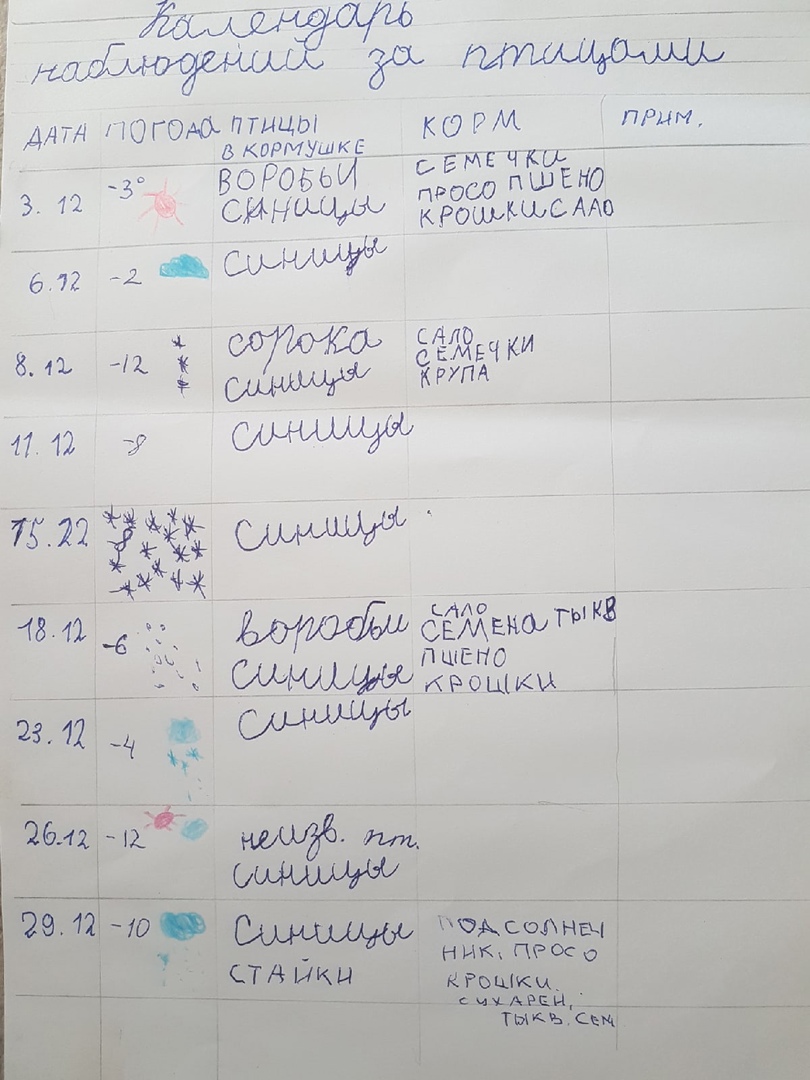 Календарь
наблюдений за птицами
ДАТА ПОГОДА ПТИЦЫ В КОРМУШКЕ КОРМ ПРИМ.
3.12 -3° ВОРОБЬИ СЕМЕЧКИ
СИНИЦЫ ПРОСО ПШЕНО
КРОШКИ САЛО
6.12 -2 СИНИЦЫ
8.12 -12 сорока САЛО
синицы СЕМЕЧКИ
КРУПА
11.12 -8 синицы
15.22 -8 синицы
18.12 -6 воробьи САЛО
СЕМЕНА ТЫКВ
синицы ПШЕНО
КРОШКИ
23.12 -4 синицы
26.12 -12 неизв. пт.
синицы
29.12 -10 синицы ПОДСОЛНЕЧ
СТАЙКИ НИК, ПРОСО
КРОШКИ.
СУХАРЕЙ,
ТЫКВ. СЕМ